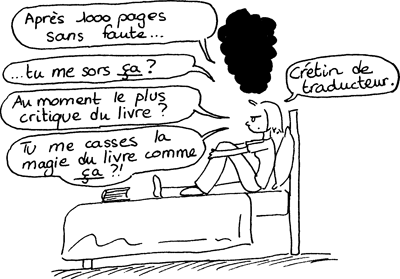 Après 1000 pages
sans faute...
...tu me sors ça ?
Au moment le plus
critique du livre ?
Tu me casses la
magie du livre comme
ça ?!
Crétin de
traducteur.